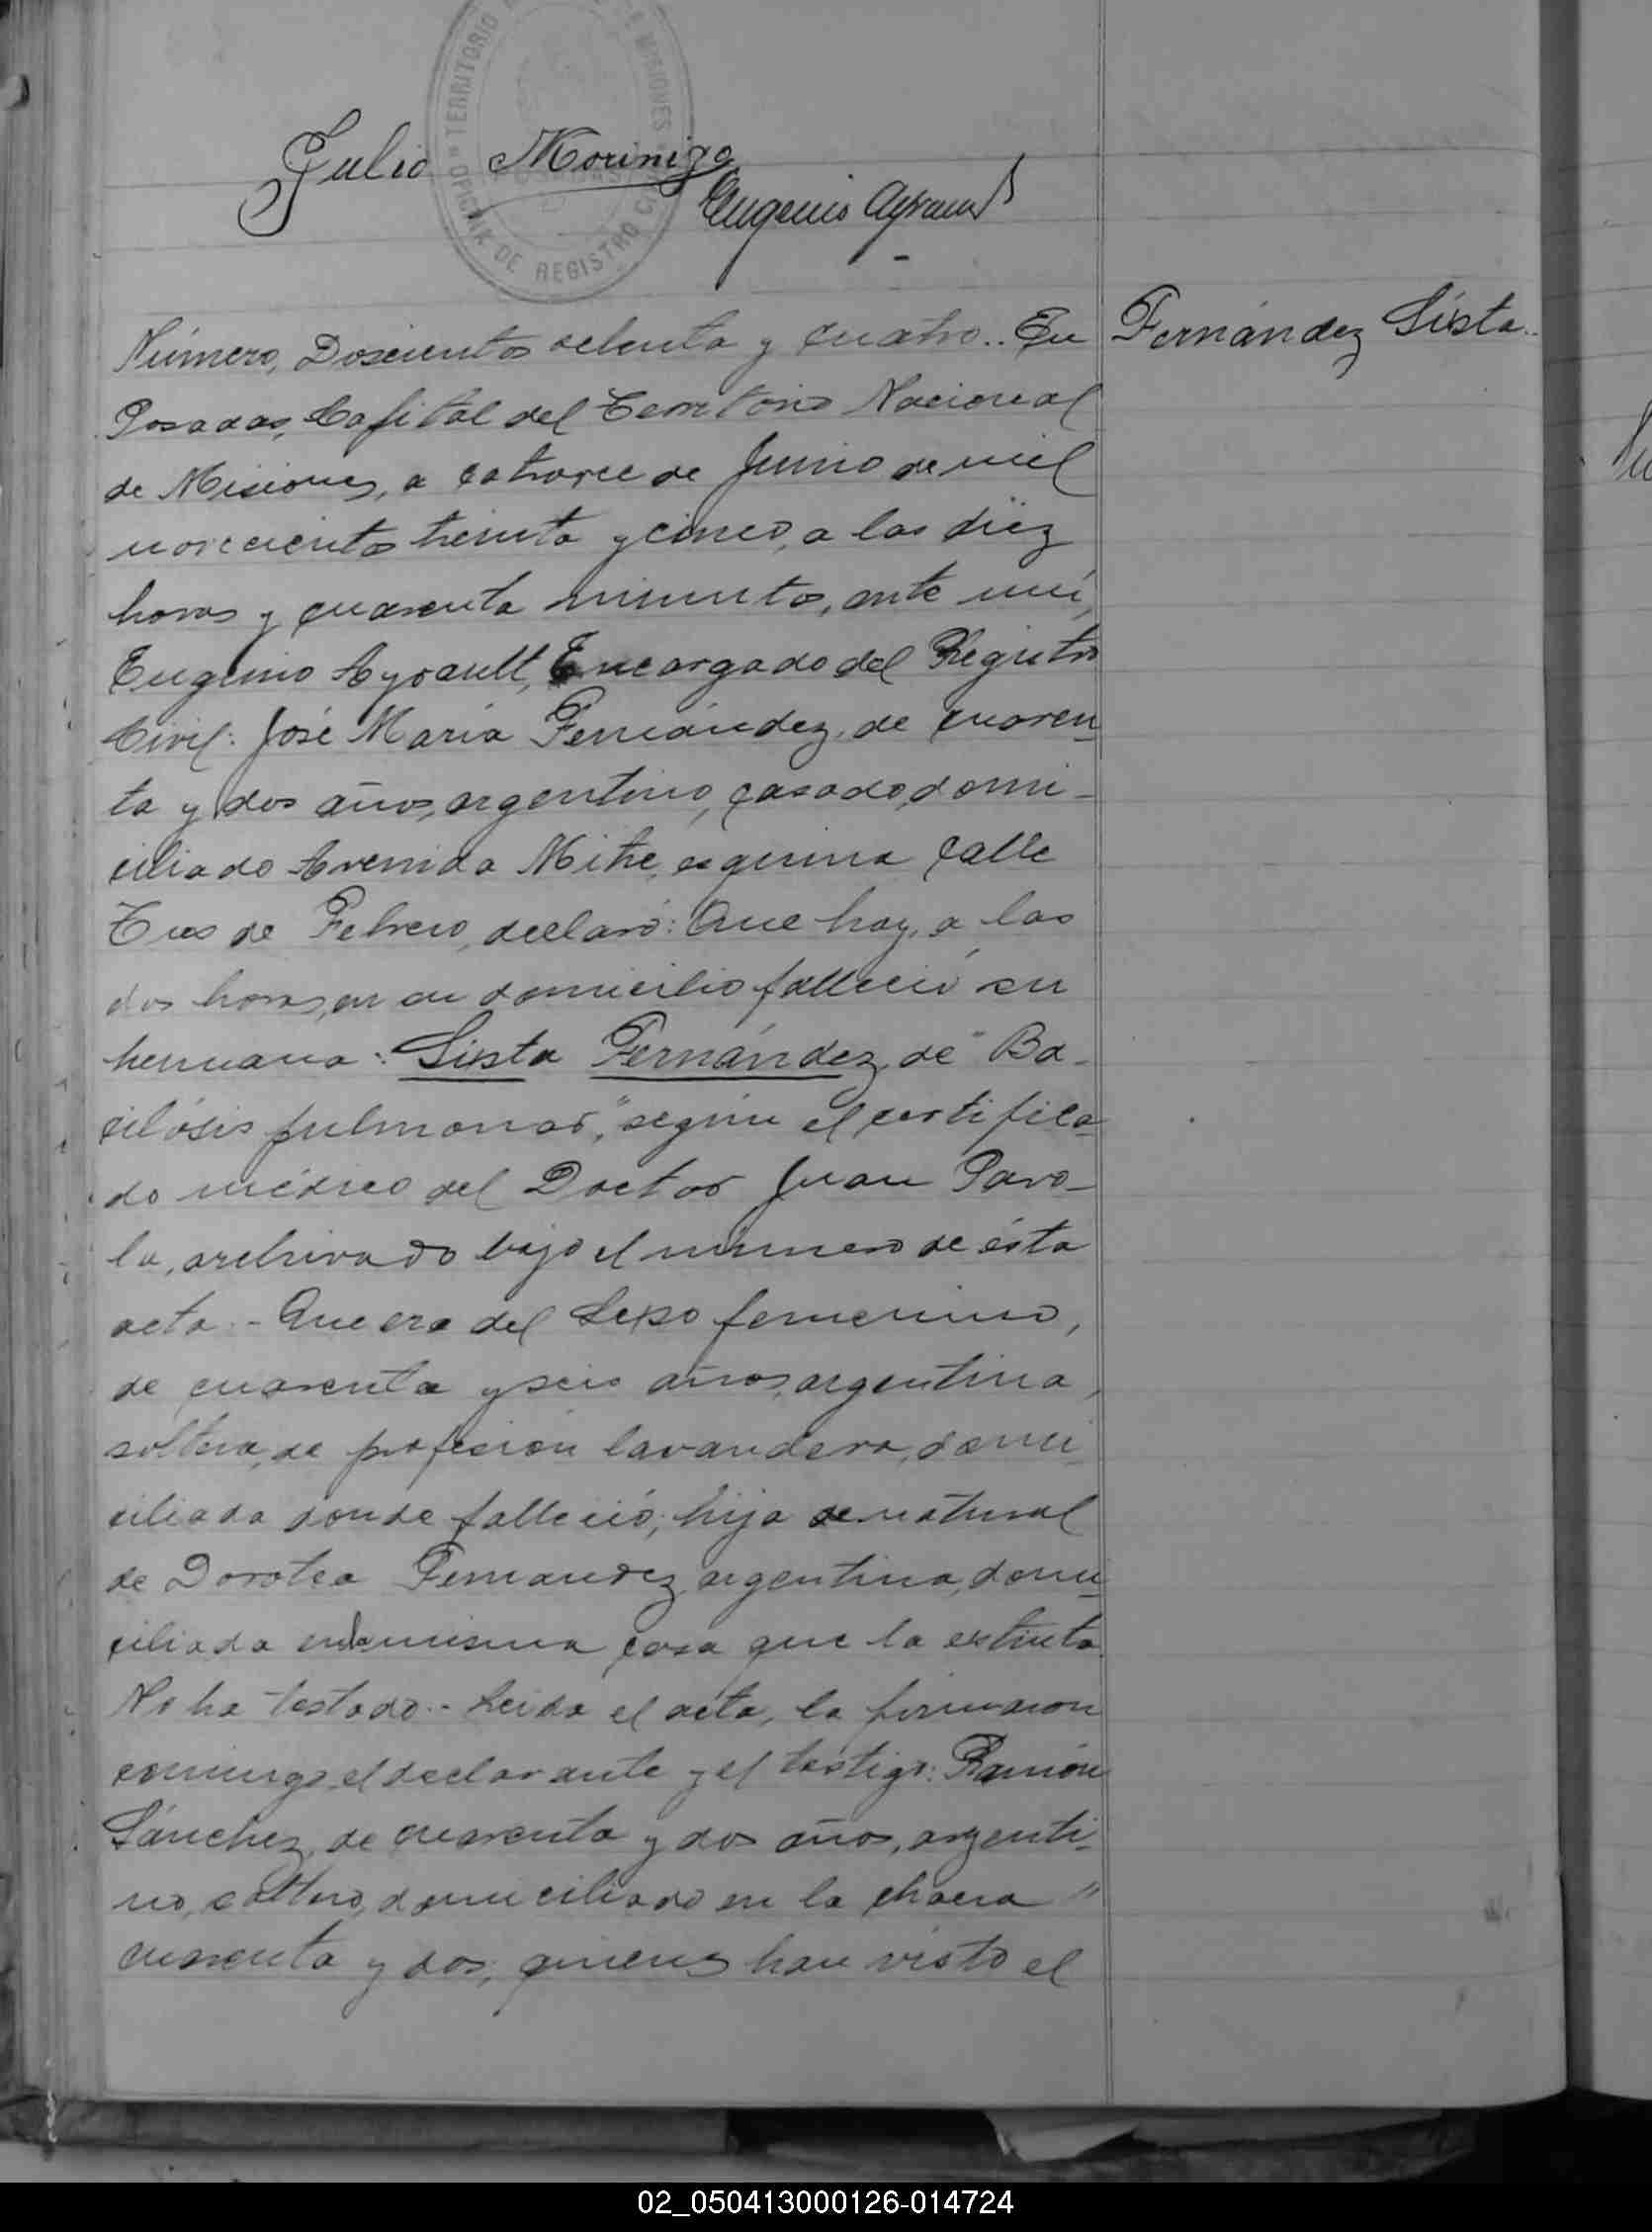 OFICINA DE REGISTRO CIVIL TERRITORIO DE MISIONES
Julio Morinigo
Eugenio Ayrault
Número, Doscientos setenta y cuatro.. En
Fernández Sixta..
Posadas, Capital del Territorio Nacional
de Misiones, a catorce de Junio de mil
novecientos treinta y cinco, a las diez
horas y cuarenta minutos, ante mí,
Eugenio Ayrault, Encargado del Registro
Civil: José María Fernández, de cuaren-
ta y dos años, argentino, casado, domi-
ciliado Avenida Mitre, esquina calle
Tres de Febrero, declaró: Que hoy, a las
dos horas, en su domicilio falleció su
hermana: Sixta Fernández, de "Ba-
cilósis pulmonar", según el certifica-
do médico del Doctor Juan Paro-
la, archivado bajo el número de ésta
acta.- Que era del sexo femenino,
de cuarenta y seis años, argentina,
soltera, de profesión lavandera, domi-
ciliada donde falleció; hija natural
de Dorotea Fernandez, argentina, domi-
ciliada en la misma casa que la extinta.
No ha testado.- Leída el acta, la firmaron
conmigo, el declarante y el testigo: Ramón
Sánchez, de cuarenta y dos años, argenti-
no, soltero, domiciliado en la chacra
cuarenta y dos, quienes han visto el
02_050413000126-014724